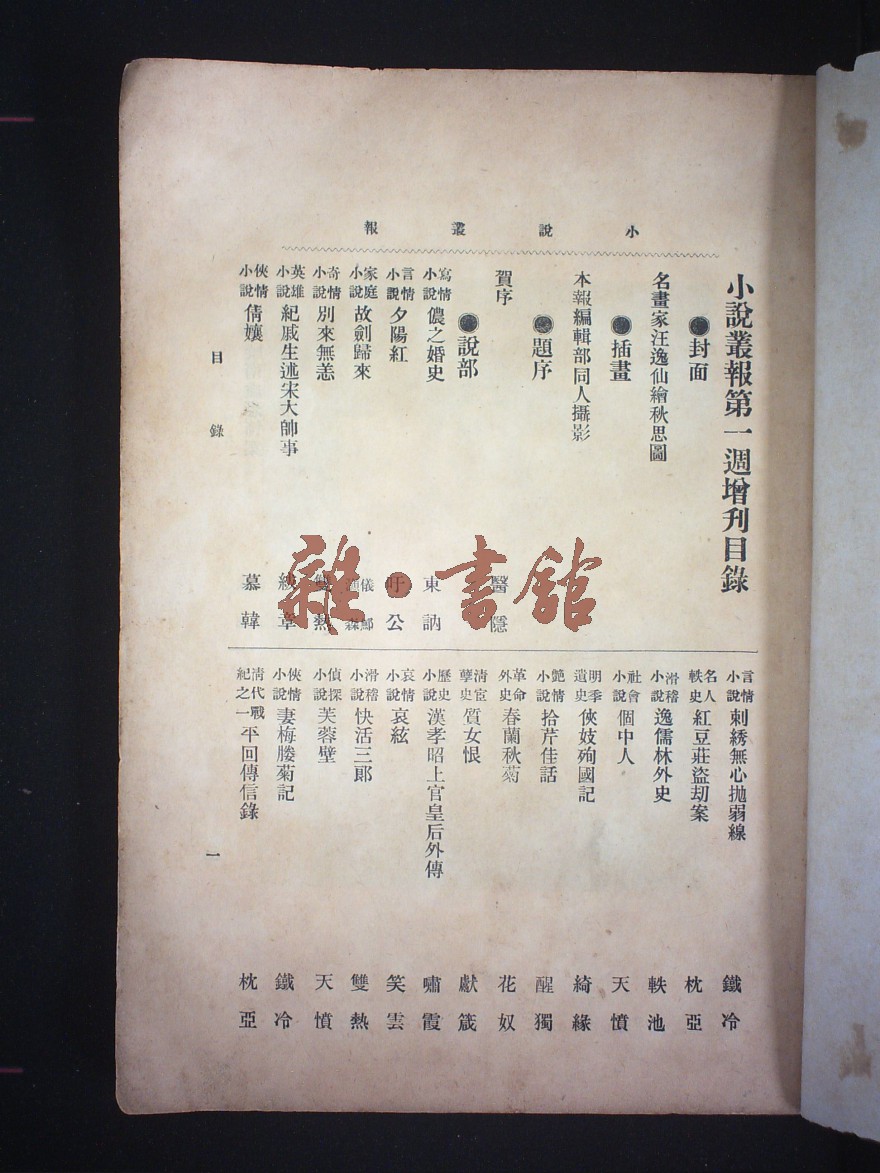 小說叢報
小說叢報第一週增刊目錄
●封面
名畫家汪逸仙繪秋思圖
●插畫
本報編輯部同人攝影
●題序
賀序 醫隱
●說部
寫情小說 儂之婚史 東訥
言情小說 夕陽紅 吁公
家庭小說 故劍歸來 儀鄦
奇情小說 別來無恙 雙熱
英雄小說 紀戚生述宋大帥事 紱章
俠情小說 倩孃 慕韓
言情小說 刺綉無心拋弱線 鐵冷
名人軼史 紅豆莊盜刧案 枕亞
滑稽小說 逸儒林外史 軼池
社會小說 個中人 天憤
明季遺史 俠妓殉國記 綺緣
艷情小說 拾芹佳話 醒獨
革命外史 春蘭秋菊 花奴
清宦孽史 質女恨 獻箴
歷史小說 漢孝昭上官皇后外傳 嘯霞
哀情小說 哀絃 笑雲
滑稽小說 快活三郎 雙熱
偵探小說 芙蓉壁 天憤
俠情小說 妻梅媵菊記 鐵冷
清代戰紀之一 平回傳信錄 枕亞
目錄
一
雜·書館